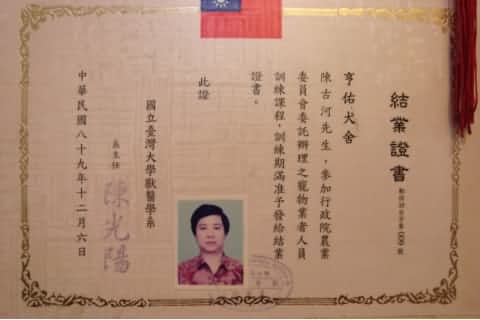 結業證書
亨佑犬舍
陳古河先生，參加行政院農業
委員會委託辦理之寵物業者人員
訓練課程，訓練期滿准予發給結業
證書。
此證
國立臺灣大學獸醫學系
系主任 陳光陽
中華民國八十九年十二月六日